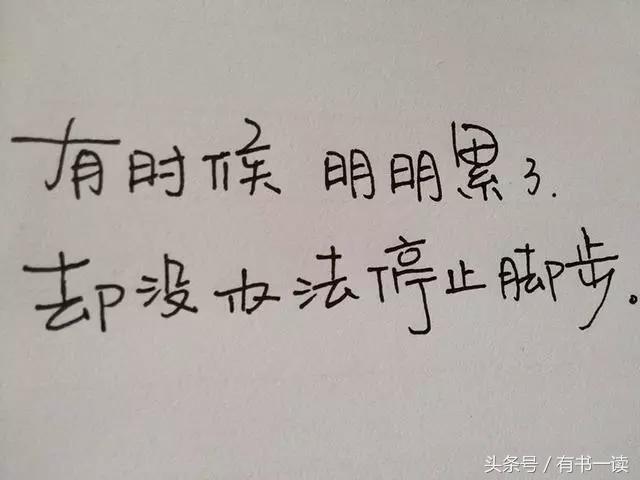 有时候 明明累了.
却没办法停止脚步。
头条号/有书一读